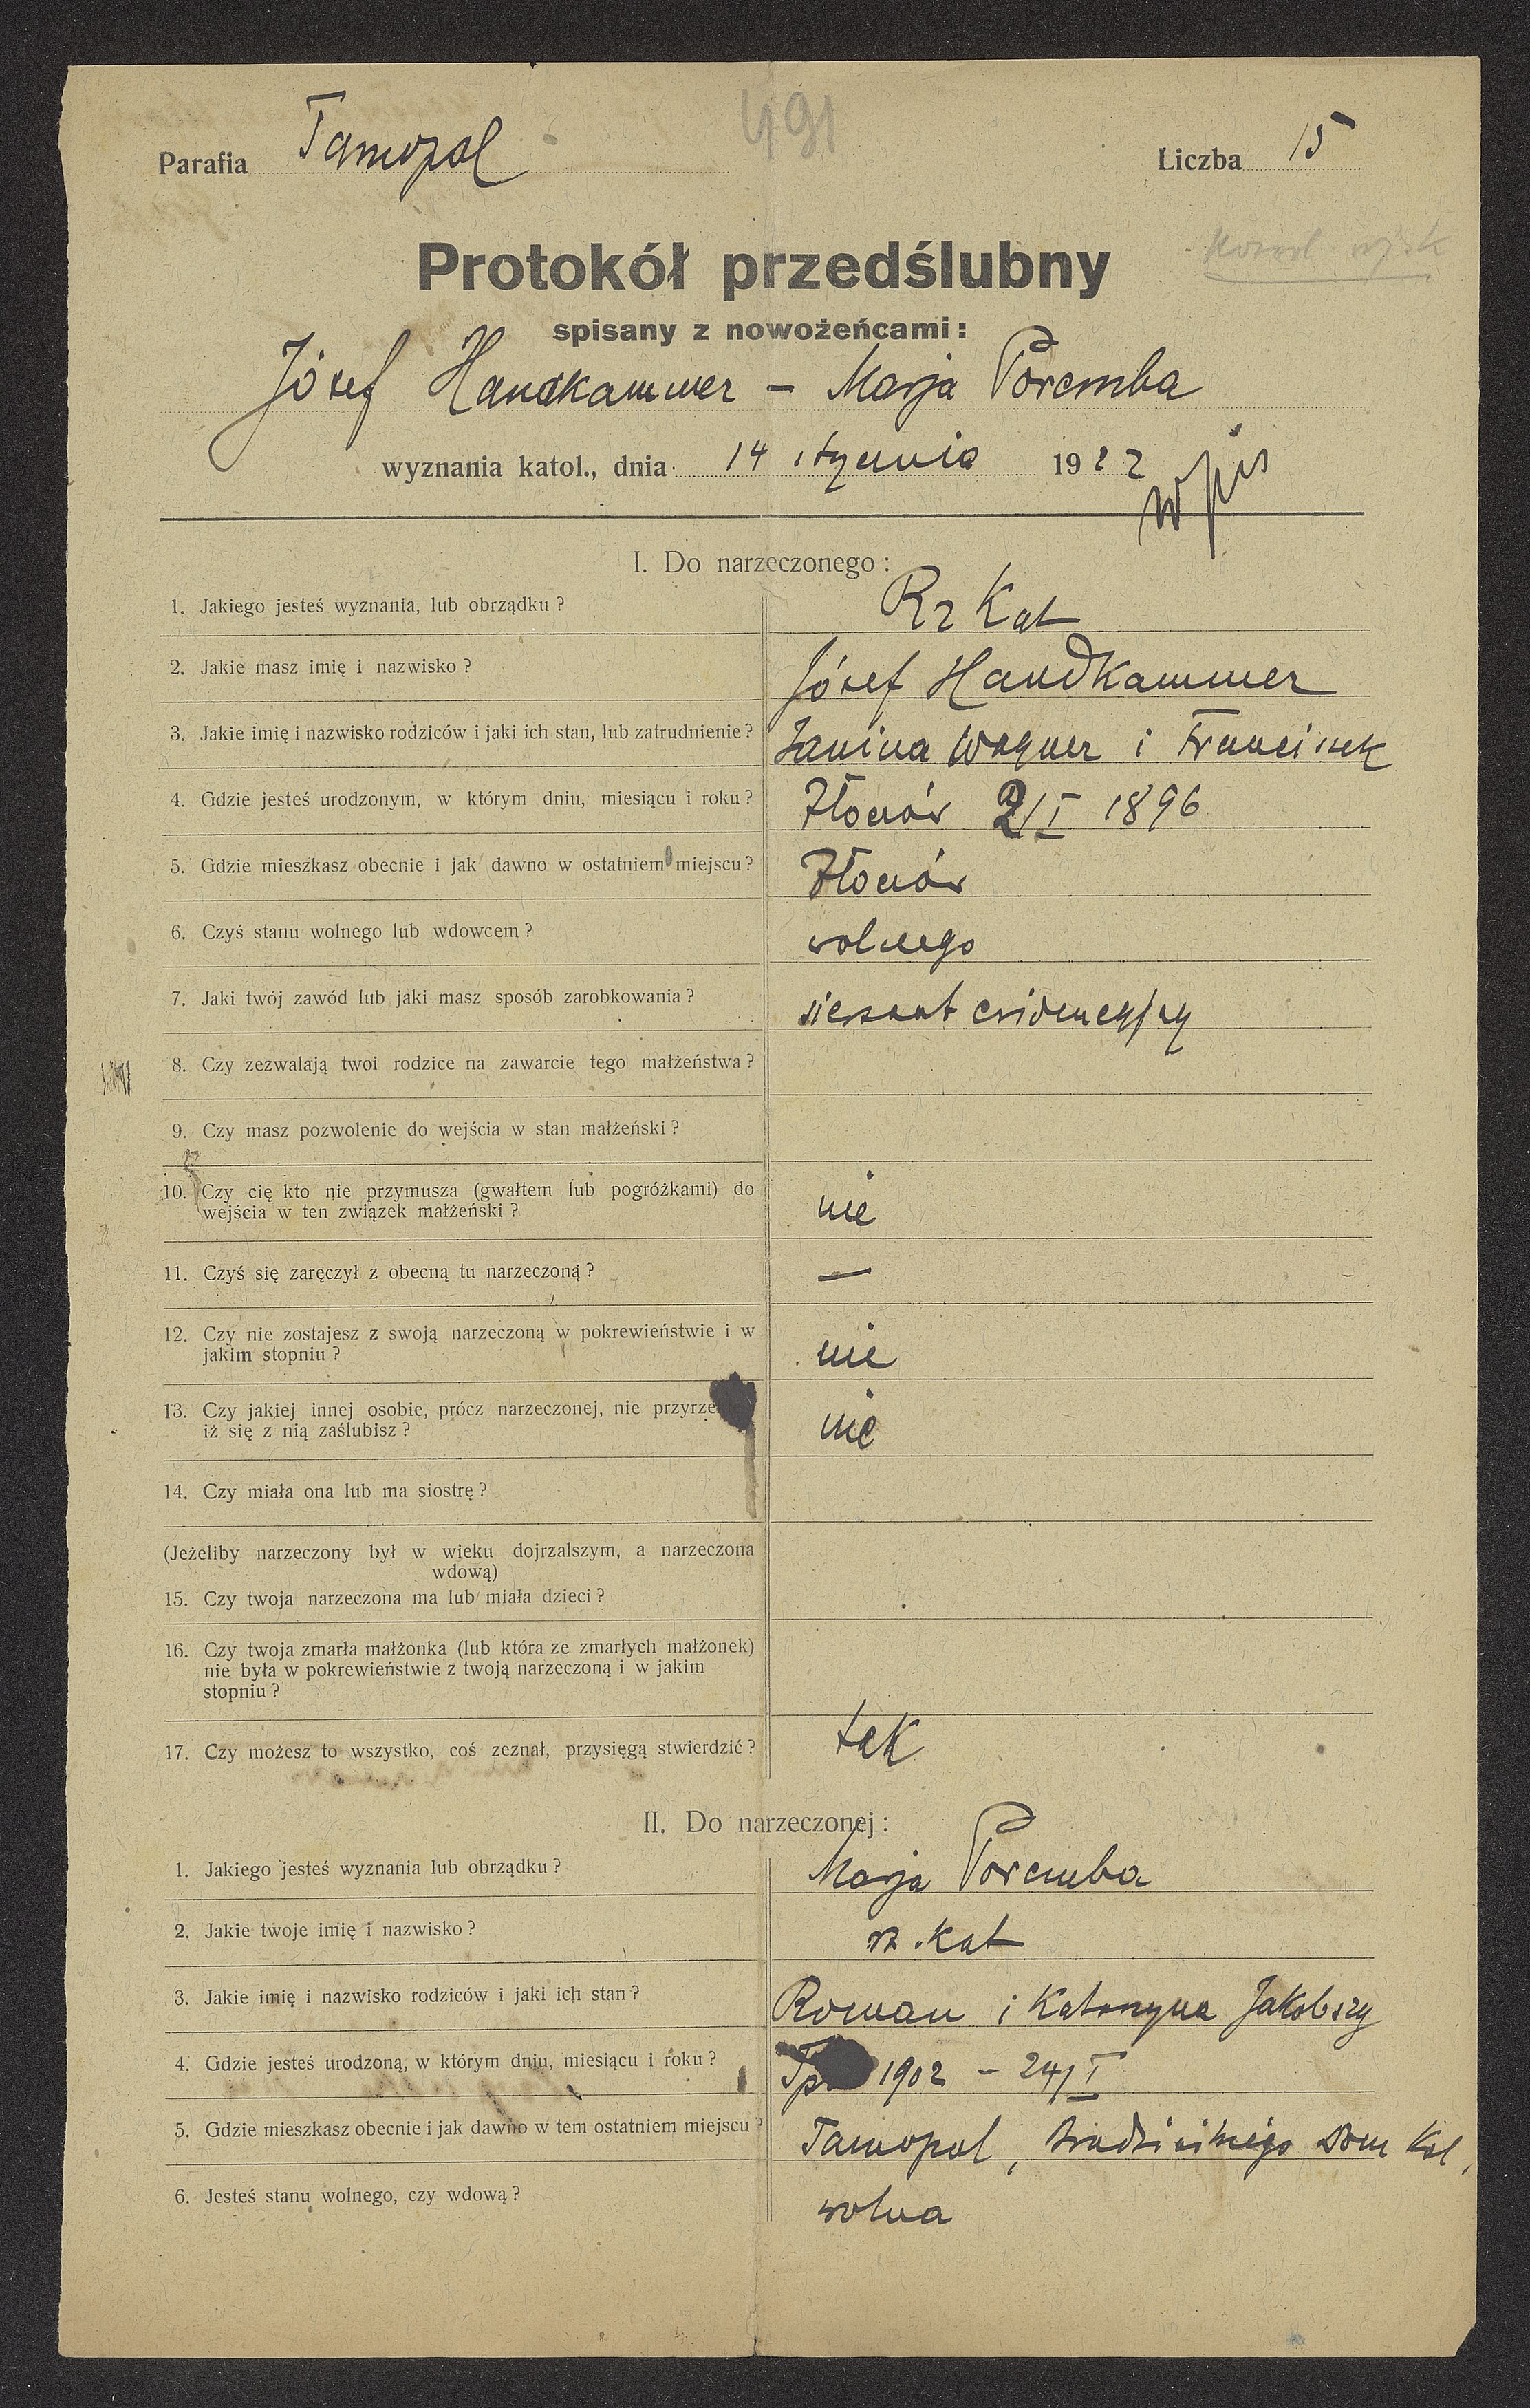 491
Parafia Tarnopol
Liczba 15
Protokół przedślubny
spisany z nowożeńcami:
Józef Handkammer – Marja Poremba
wyznania katol., dnia 14 stycznia 1922
wpis
I. Do narzeczonego:
1. Jakiego jesteś wyznania, lub obrządku? Rz Kat
2. Jakie masz imię i nazwisko? Józef Handkammer
3. Jakie imię i nazwisko rodziców i jaki ich stan, lub zatrudnienie? Janina Wagner i Franciszek
4. Gdzie jesteś urodzonym, w którym dniu, miesiącu i roku? Złoczów 2/I 1896
5. Gdzie mieszkasz obecnie i jak dawno w ostatniem miejscu? Złoczów
6. Czyś stanu wolnego lub wdowcem? wolnego
7. Jaki twój zawód lub jaki masz sposób zarobkowania? sierżant ewidencyjny
8. Czy zezwalają twoi rodzice na zawarcie tego małżeństwa?
9. Czy masz pozwolenie do wejścia w stan małżeński?
10. Czy cię kto nie przymusza (gwałtem lub pogróżkami) do
wejścia w ten związek małżeński? nie
11. Czyś się zaręczył z obecną tu narzeczoną? —
12. Czy nie zostajesz z swoją narzeczoną w pokrewieństwie i w
jakim stopniu? nie
13. Czy jakiej innej osobie, prócz narzeczonej, nie
iż się z nią zaślubisz? nie
14. Czy miała ona lub ma siostrę?
(Jeżeliby narzeczony był w wieku dojrzalszym, a narzeczona
wdową)
15. Czy twoja narzeczona ma lub miała dzieci?
16. Czy twoja zmarła małżonka (lub która ze zmarłych małżonek)
nie była w pokrewieństwie z twoją narzeczoną i w jakim
stopniu?
17. Czy możesz to wszystko, coś zeznał, przysięgą stwierdzić? tak
II. Do narzeczonej:
1. Jakiego jesteś wyznania lub obrządku? Marja Poremba
2. Jakie twoje imię i nazwisko? rz. kat
3. Jakie imię i nazwisko rodziców i jaki ich stan? Roman i Katarzyna
4. Gdzie jesteś urodzoną, w którym dniu, miesiącu i roku? 1902 – 24/I
5. Gdzie mieszkasz obecnie i jak dawno w tem ostatniem miejscu? Tarnopol, Dom Kol,
6. Jesteś stanu wolnego, czy wdową? wolna